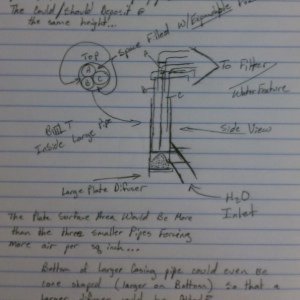 The Could/Should Deposit @
the same height...
Space Filled W/Expandable
Top
A
B
C
A
B
C
To Filter
Water Feature
Inside Large Pipe
Side View
Large Plate Difuser
H2O
Inlet
The Plate Surface Area Would Be More
than the three smaller Pipes Forcing
more air per sq inch...
Bottom of larger Casing pipe could even be
cone shaped (larger on Bottom) So that a